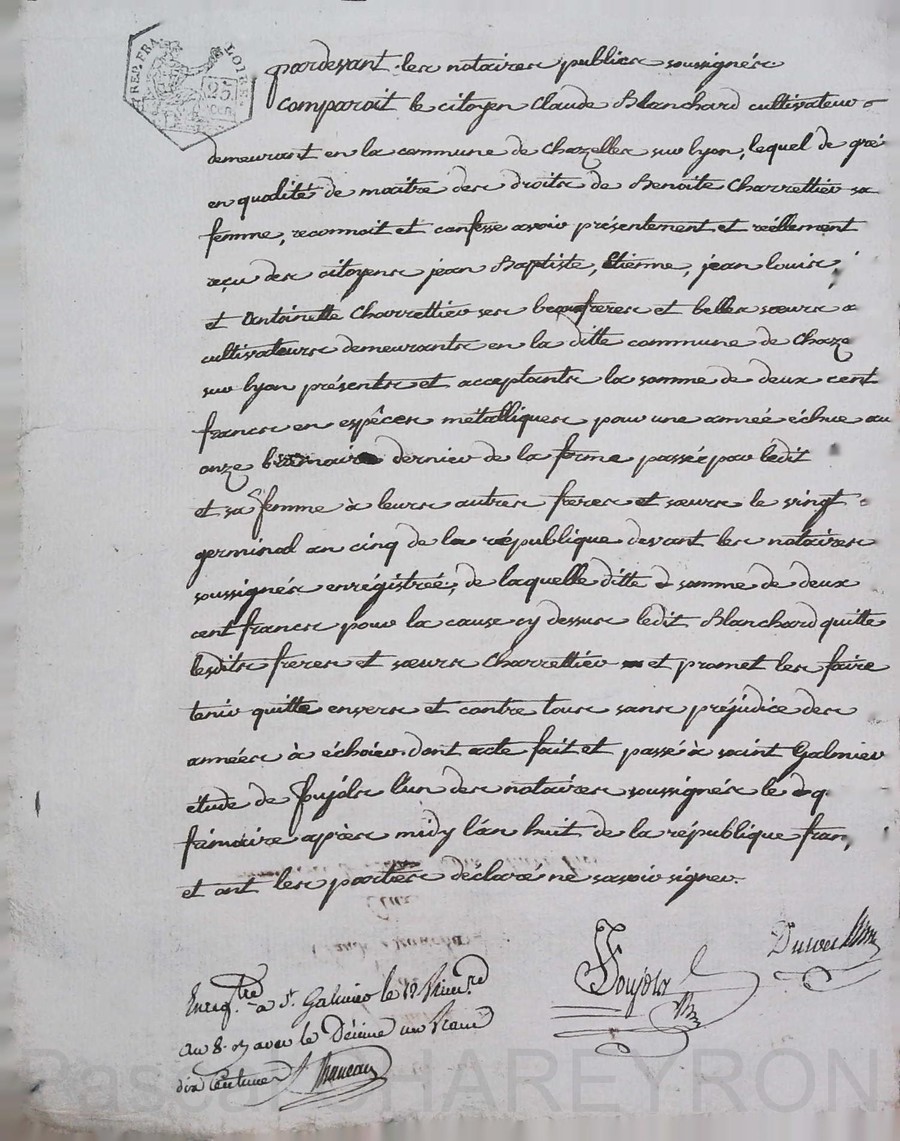 REP. FRA. LOIRE.
25
pardevant les notaires publics soussignés
comparoit le citoyen Claude Blanchard cultivateur
demeurant en la commune de Chazelles sur lyon, lequel de gré
en qualité de maitre des droits de Benoite Charrettier sa
femme, reconnoit et confesse avoir présentement et réellement
reçu des citoyens jean Baptiste, Etienne, jean louis,
et Antoinette Charrettier ses beaufreres et belles sœurs
cultivateurs demeurants en la ditte commune de Chaze
sur lyon présents et acceptants la somme de deux cent
francs en espêces métalliques pour une année échue au
onze brumaire dernier de la ferme passée par ledit
et sa femme à leurs autres freres et sœurs le vingt
germinal an cinq de la république devant les notaires
soussignés enrégistrée, de laquelle ditte somme de deux
cent francs pour la cause cy dessus ledit Blanchard quitte
lesdits freres et sœurs Charrettier et promet les faire
tenir quitte envers et contre tous sans préjudice des
années à échoir dont acte fait et passé à saint Galmier
étude de Foujols l'un des notaires soussignés le
frimaire après midy l'an huit de la république fran,
et ont les parties déclaré ne savoir signer.
Foujols
Enregtré à St. Galmier le 12 frimre
an 8. avec le Décime un franc
dix centimes
Pascal CHAREYRON